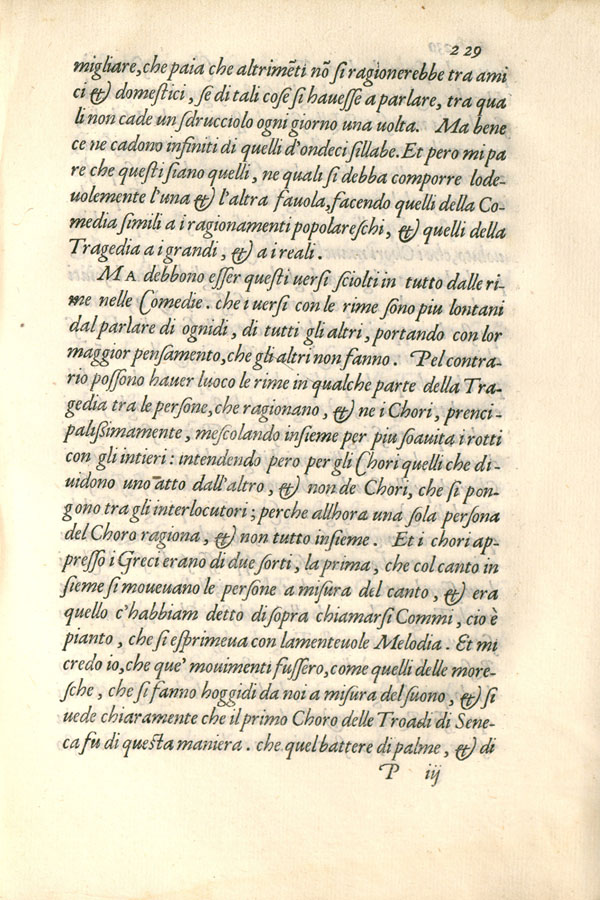 229
migliare, che paia che altrimẽti nõ si ragionerebbe tra ami
ci & domestici, se di tali cose si hauesse a parlare, tra qua
li non cade un sdrucciolo ogni giorno una uolta. Ma bene
ce ne cadono infiniti di quelli d'ondeci sillabe. Et pero mi pa
re che questi siano quelli, ne quali si debba comporre lode-
uolemente l'una & l'altra fauola, facendo quelli della Co-
media simili a i ragionamenti popolareschi, & quelli della
Tragedia a i grandi, & a i reali.
MA debbono esser questi uersi sciolti in tutto dalle ri-
me nelle Comedie. che i uersi con le rime sono piu lontani
dal parlare di ognidi, di tutti gli altri, portando con lor
maggior pensamento, che gli altri non fanno. Pel contra-
rio possono hauer luoco le rime in qualche parte della Tra-
gedia tra le persone, che ragionano, & ne i Chori, prenci-
palissimamente, mescolando insieme per piu soauita i rotti
con gli intieri: intendendo pero per gli Chori quelli che di-
uidono uno atto dall'altro, & non de Chori, che si pon-
gono tra gli interlocutori; perche allhora una sola persona
del Choro ragiona, & non tutto insieme. Et i chori ap-
presso i Greci erano di due sorti, la prima, che col canto in
sieme si moueuano le persone a misura del canto, & era
quello c'habbiam detto di sopra chiamarsi Commi, cio è
pianto, che si esprimeua con lamenteuole Melodia. Et mi
credo io, che que' mouimenti fussero, come quelli delle more-
sche, che si fanno hoggidi da noi a misura del suono, & si
uede chiaramente che il primo Choro delle Troadi di Sene-
ca fu di questa maniera. che quel battere di palme, & di
P iij